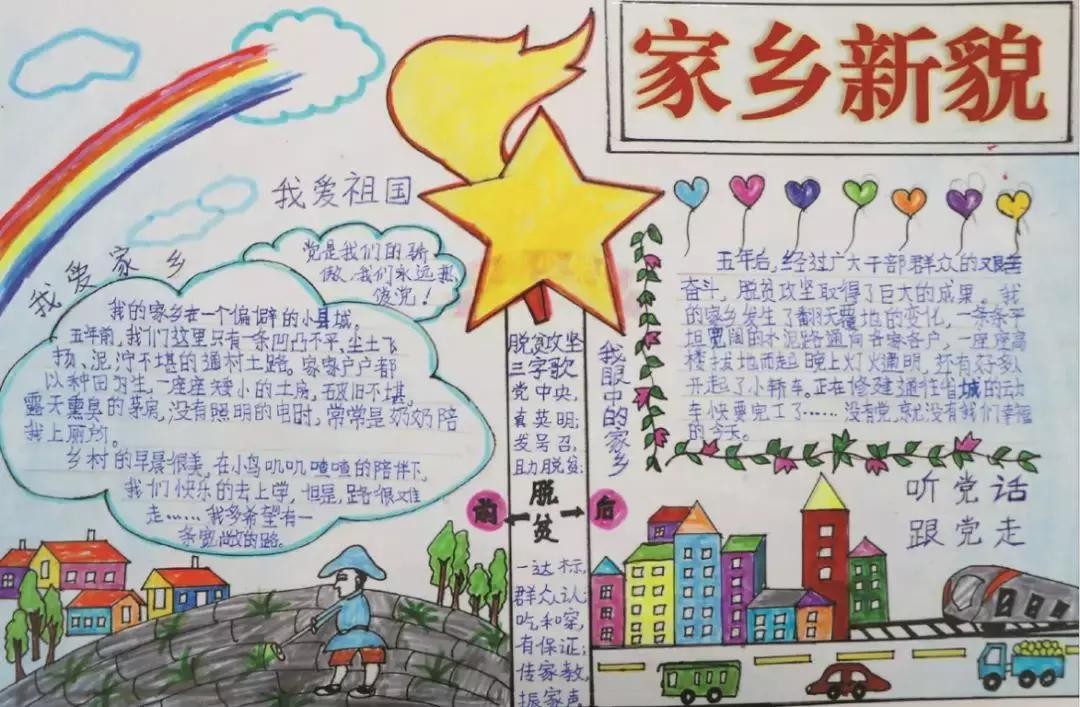 家乡新貌
我爱祖国
我爱家乡
党是我们的骄
傲，我们永远热
爱党！
我的家乡在一个偏僻的小县城。
五年前，我们这里只有一条凹凸不平、尘土飞
扬、泥泞不堪的通村土路。家家户户都
以种田为生，一座座矮小的土房，破旧不堪。
露天熏臭的茅房，没有照明的电时，常常是奶奶陪
我上厕所。
乡村的早晨很美，在小鸟叽叽喳喳的陪伴下，
我们快乐的去上学，但是，路很难
走……我多希望有一
条宽敞的路。
脱贫攻坚
三字歌
党中央，
真英明；
发号召，
助脱贫；
前
脱贫
后
一达标，
群众认；
吃和穿，
有保证；
传家教，
振家声
我眼中的家乡
五年后，经过广大干部群众的艰苦
奋斗，脱贫攻坚取得了巨大的成果。我
的家乡发生了翻天覆地的变化，一条条平
坦宽阔的水泥路通向各家各户，一座座高
楼拔地而起，晚上灯火通明，还有好多人
开起了小轿车。正在修建通往省城的动
车快要完工了……没有党，就没有我们幸福
的今天。
听党话
跟党走